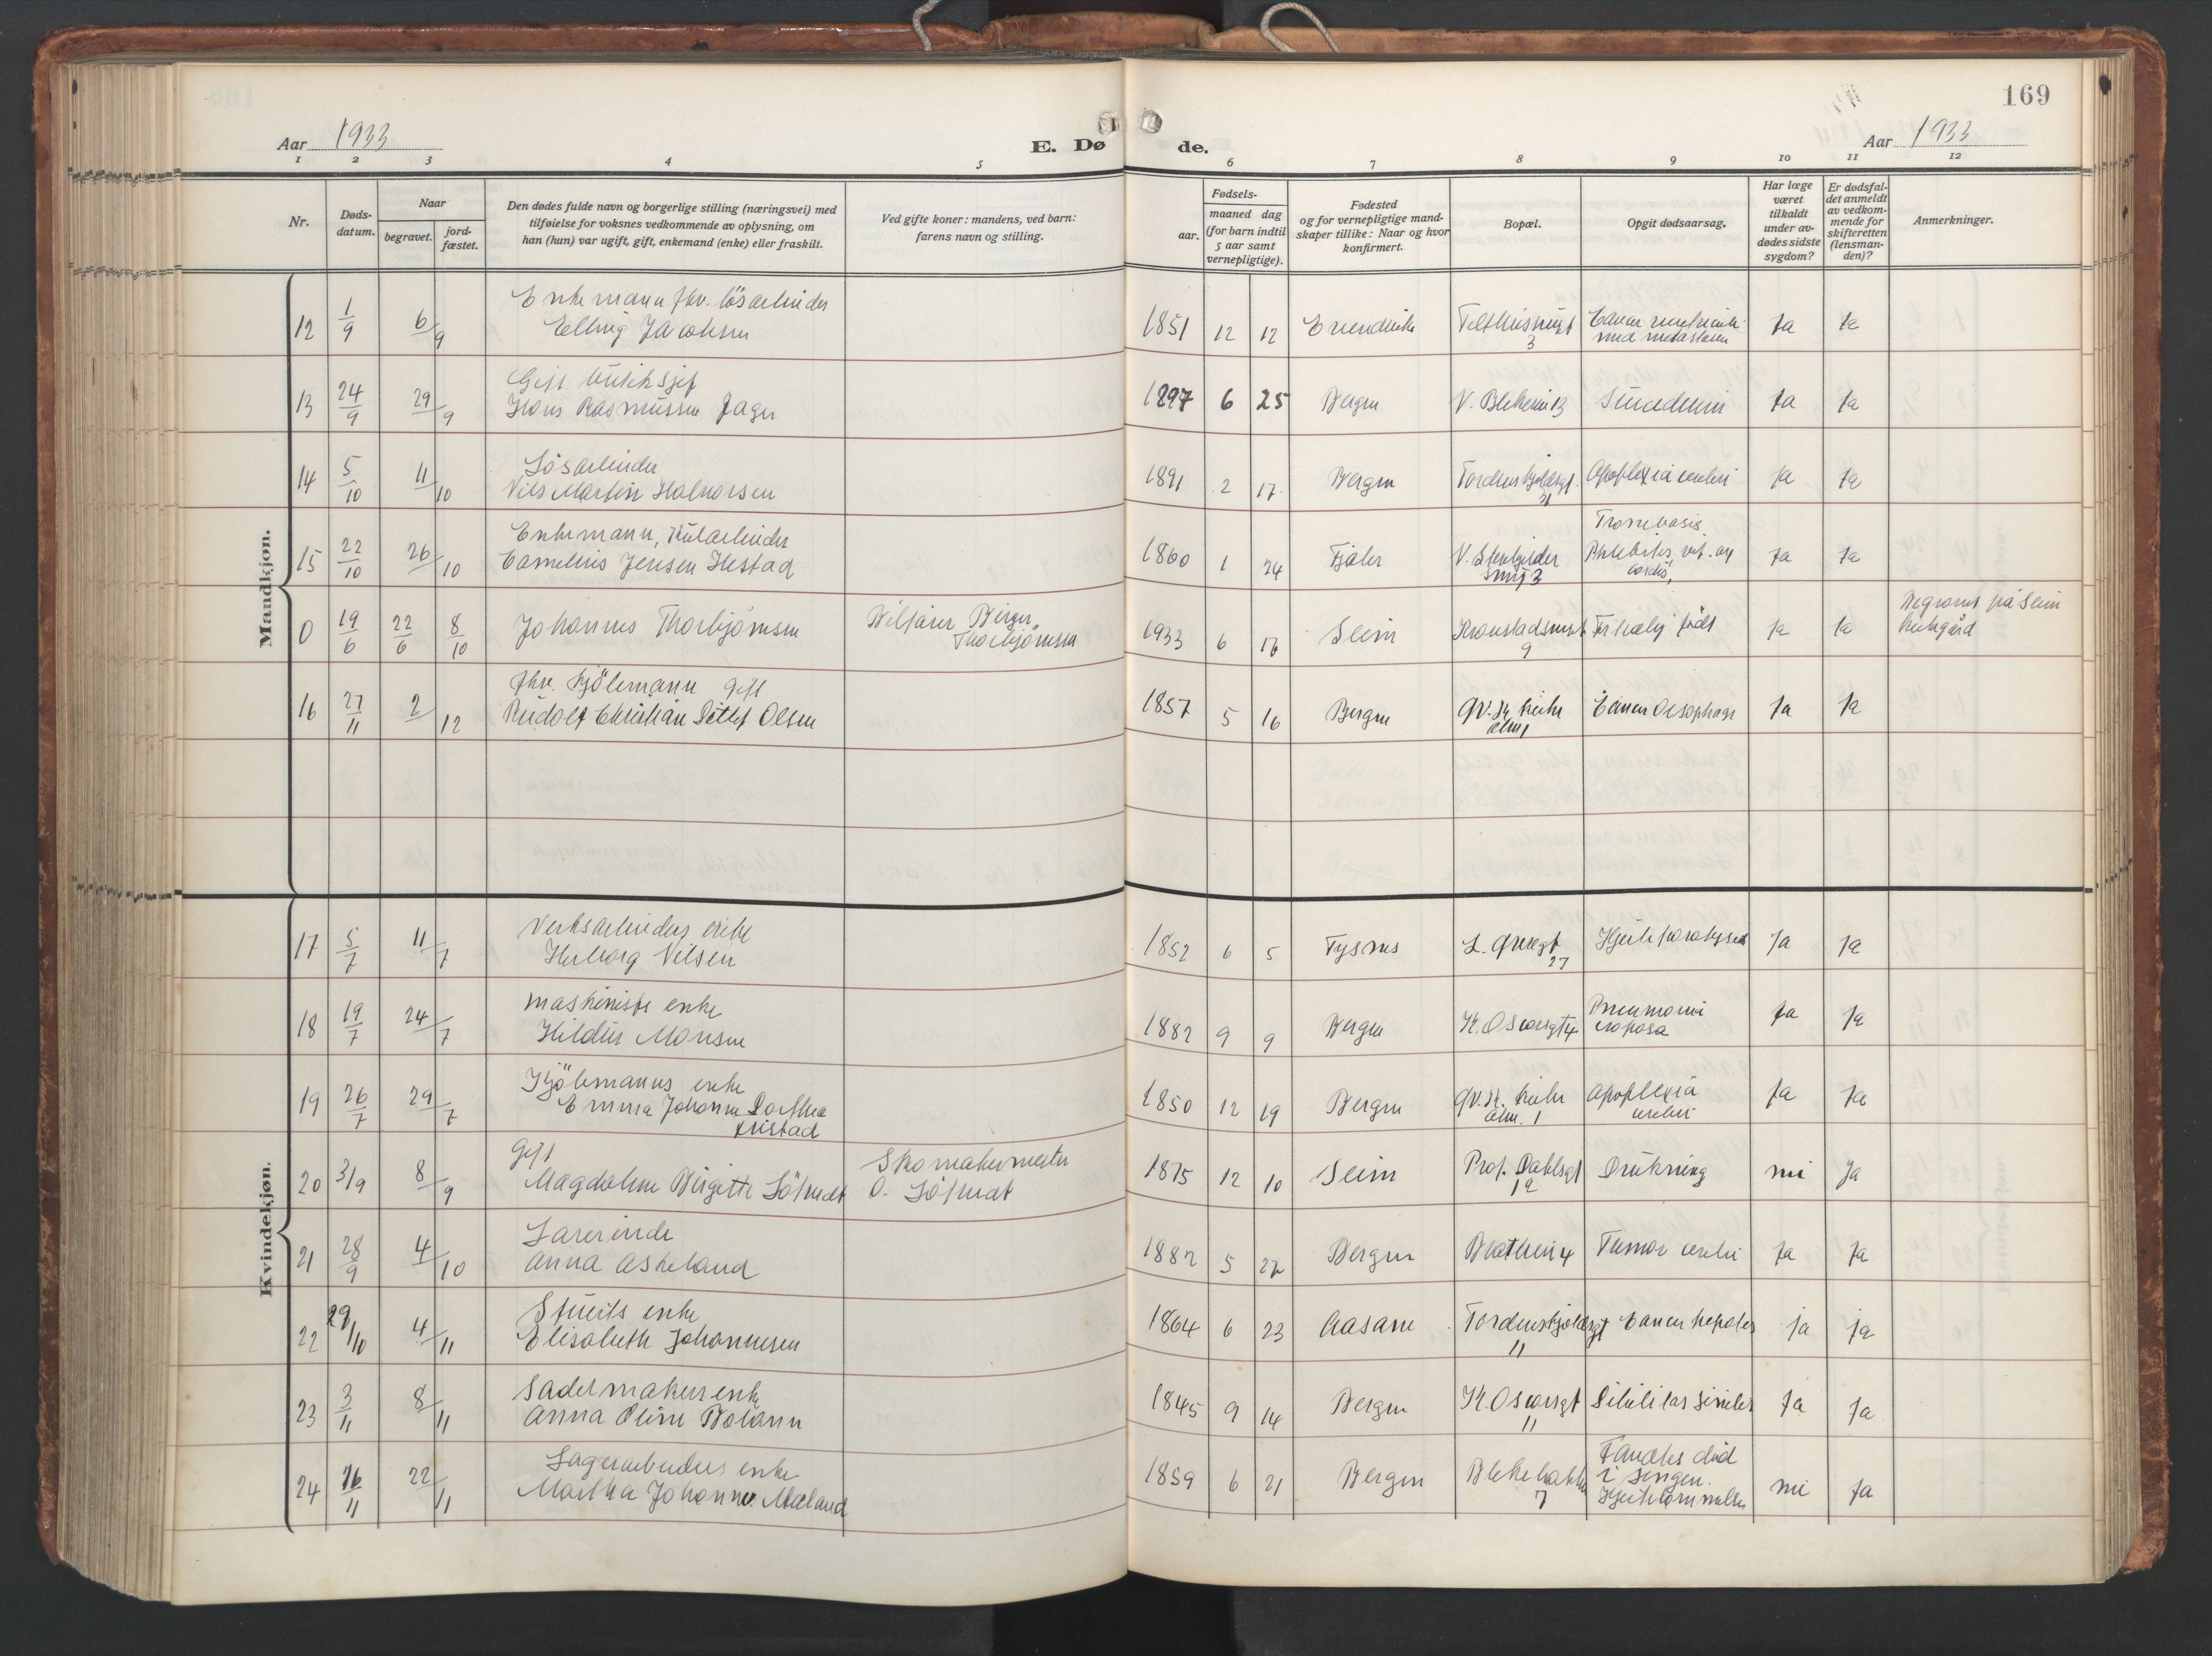 169
Aar 1933
E. Dø de.
Aar 1933
1 2 3 4 5 6 7 8 9 10 11 12
Nr.
Døds-
datum.
Naar
begravet.
jord-
fæstet.
Den dødes fulde navn og borgerlige stilling (næringsvei) med
tilføielse for voksnes vedkommende av oplysning, om
han (hun) var ugift, gift, enkemand (enke) eller fraskilt.
Ved gifte koner: mandens, ved barn:
farens navn og stilling.
Fødsels-
aar.
maaned dag
(for barn indtil
5 aar samt
vernepligtige).
Fødested
og for vernepligtige mand-
skaper tillike: Naar og hvor
konfirmert.
Bopæl.
Opgit dødsaarsag.
Har læge
været
tilkaldt
under av-
dødes sidste
sygdom?
Er dødsfal-
det anmeldt
av vedkom-
mende for
skifteretten
(lensman-
den)?
Anmerkninger.
Mandkjøn.
Enkemann fhv. løsarbeider
12 1/9 6/9 Elling Jacobsen 1851 12 12 3 Ja Ja
Gift
13 24/9 29/9 Hans Rasmussen Jager 1897 6 25 Bergen Ja Ja
Løsarbeider
14 5/10 11/10 Nils Martin Halvorsen 1891 2 17 Bergen Tordenskjoldsgt. 21 Apoplexia cerebri Ja Ja
Enkemann,
15 22/10 26/10 Cornelius Jensen Hestad 1860 1 24 Fjaler Ja Ja
0 19/6 22/6 8/10 Johannes Thorbjørnsen Bilfører Birger Thorbjørnsen 1933 6 16 Seim 9 født Ja Ja Begravet på Seim
kirkegård
fhv. Kjølemann gift
16 27/11 2/12 Rudolf Christian Ditlef Olsen 1857 5 16 Bergen Cancer Oesophagi Ja Ja
Kvindekjøn.
Verksarbeiders enke
17 5/7 11/7 Herborg Nilsen 1852 6 5 Tysnes 27 Ja Ja
maskinists enke
18 19/7 24/7 Hildur Monsen 1882 9 9 Bergen K. Oscarsgt 4 Pneumoni
croposa Ja Ja
enke
19 26/7 29/7 Emma Johanne Dorthea 1850 12 19 Bergen Apoplexia
cerebri Ja Ja
Gift
20 3/9 8/9 Magdalene Birgitte Skomakermester
O. 1875 12 10 Seim Prof. Dahlsgt
12 Drukning nei Ja
Lærerinde
21 28/9 4/10 Anna Askeland 1882 5 27 Bergen Tumor cerebri Ja Ja
Stuerts enke
22 29/10 4/11 Elisabeth Johannesen 1864 6 23 Aasane Tordenskjoldsgt
11 Cancer hepatis ja ja
Sadelmakers enke
23 3/11 8/11 Anna Oline Bolann 1845 9 14 Bergen K. Oscarsgt
11 Ja Ja
Lagerarbeiders enke
24 16/11 22/11 Martha Johanne Mæland 1859 6 21 Bergen 7 Fandtes død
i sengen.
Hjertelammelse nei Ja